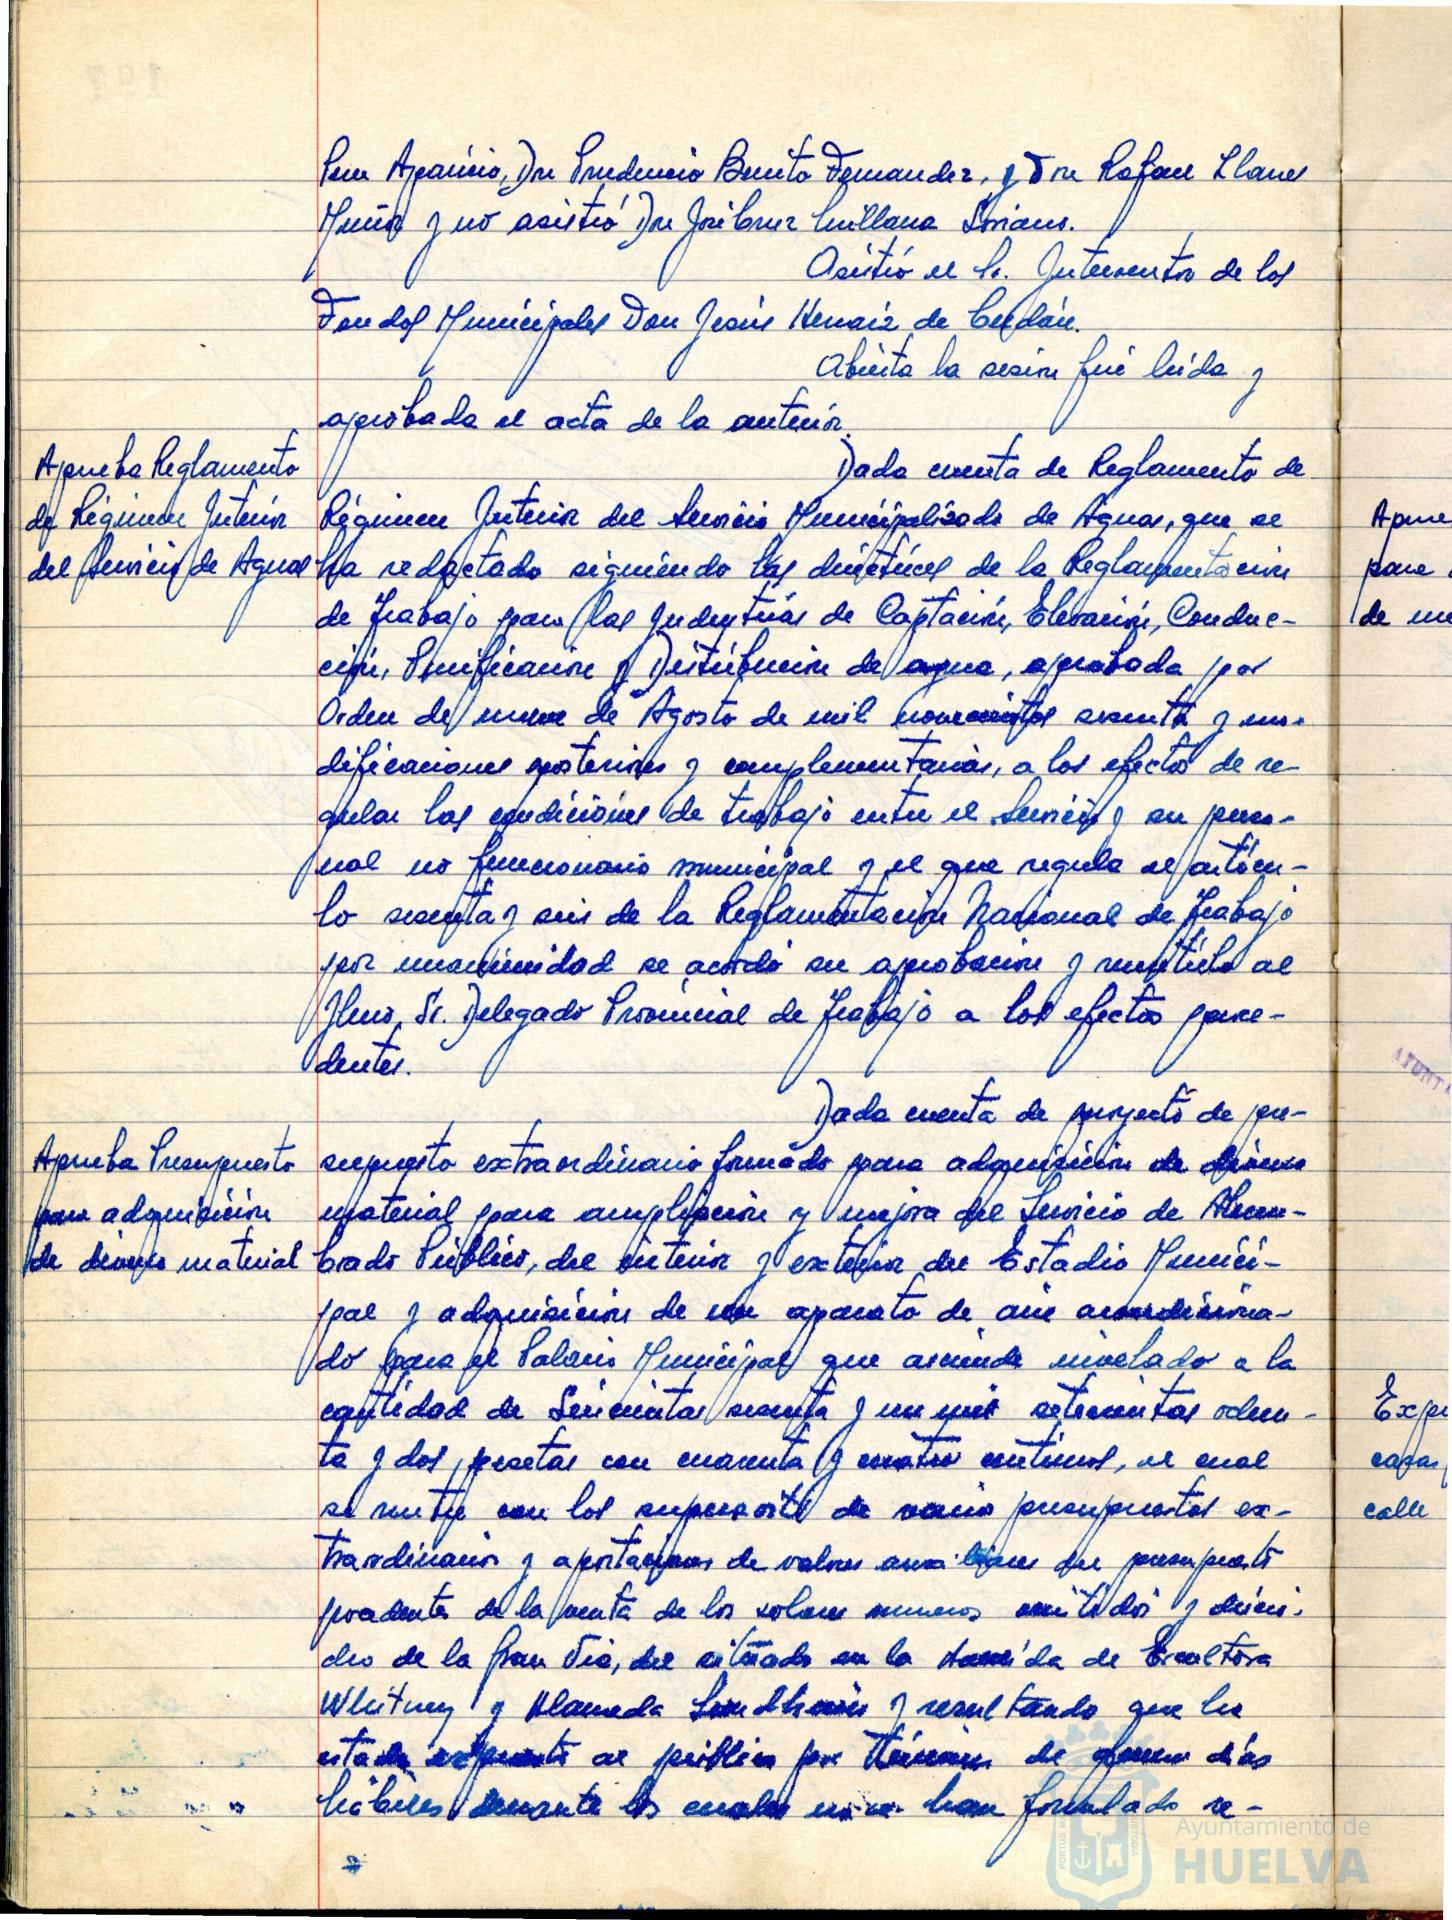 Aparicio, Don Prudencio Benito Fernandez, y Don Rafael Llanes
Muñoz y no asistió Don José Cruz Quillana Soriano.
Asistió el Sr. Interventor de los
Fondos Municipales Don Jesús Hernaiz de
Abierta la sesion fué leida y
aprobada el acta de la anterior.
Aprueba Reglamento
de Régimen Interior
del Servicio de Aguas
Dada cuenta de Reglamento de
Régimen Interior del Servicio Municipalizado de Aguas, que se
ha redactado siguiendo las directrices de la Reglamentacion
de trabajo para las Industrias de Captación, Elevación, Conduc-
ción, Purificacion y Distribucion de agua, aprobada por
Orden de nueve de Agosto de mil novecientos sesenta y mo-
dificaciones posteriores y complementarias, a los efectos de re-
gular las condiciones de trabajo entre el Servicio y su perso-
nal no funcionario municipal y el que regula el artícu-
lo sesenta y seis de la Reglamentacion Nacional de Trabajo
por unanimidad se acordó su aprobacion y remitirlo al
Ilmo. Sr. Delegado Provincial de Trabajo a los efectos proce-
dentes.
Aprueba Presupuesto
para adquisición
de diverso material
Dada cuenta de proyecto de pre-
supuesto extraordinario formado para adquisición de diverso
material para ampliacion y mejora del Servicio de Alum-
brado Público, del interior y exterior del Estadio Munici-
pal y adquisición de un aparato de aire acondiciona-
do para el Palacio Municipal que asciende nivelado a la
cantidad de Seiscientas sesenta y un mil setecientas ochen-
ta y dos pesetas con cuarenta y cuatro centimos, el cual
se nutre con los superavits de varios presupuestos ex-
traordinarios y aportaciones de valores auxiliares del presupuesto
procedentes de la venta de los solares numeros veintidos y
de la Gran Via, del situado en la Avenida de Escultora
Whitney y Alameda Sundheim y resultando que ha
estado expuesto al publico por término de quince dias
hábiles durante los cuales no se han formulado re-
Ayuntamiento de
HUELVA